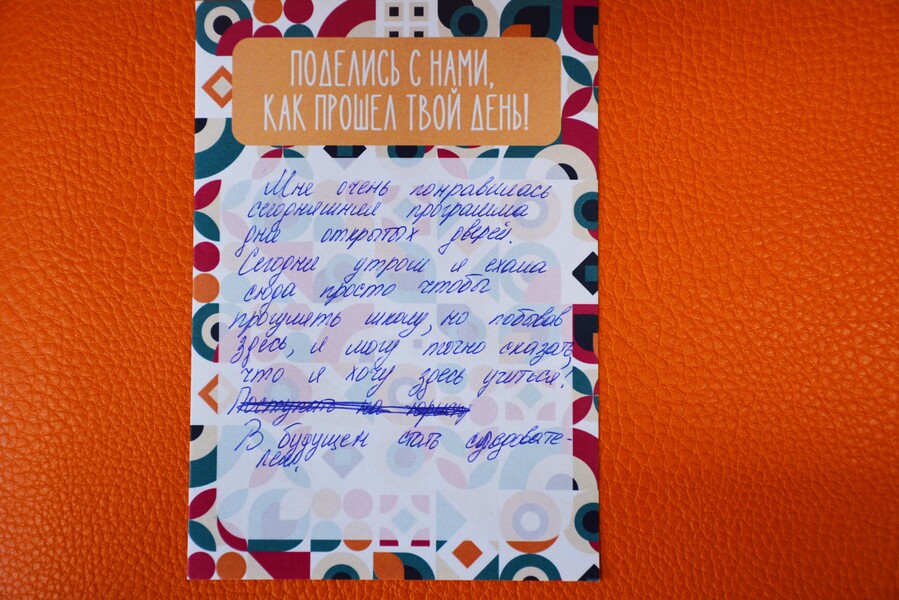 ПОДЕЛИСЬ С НАМИ,
КАК ПРОШЕЛ ТВОЙ ДЕНЬ!
Мне очень понравилась
сегодняшняя программа
дня открытых дверей.
Сегодня утром я ехала
сюда просто чтобы
прогулять школу, но побывав
здесь, я могу точно сказать,
что я хочу здесь учиться!
Поступить на
В будущем стать следовате-
лем!